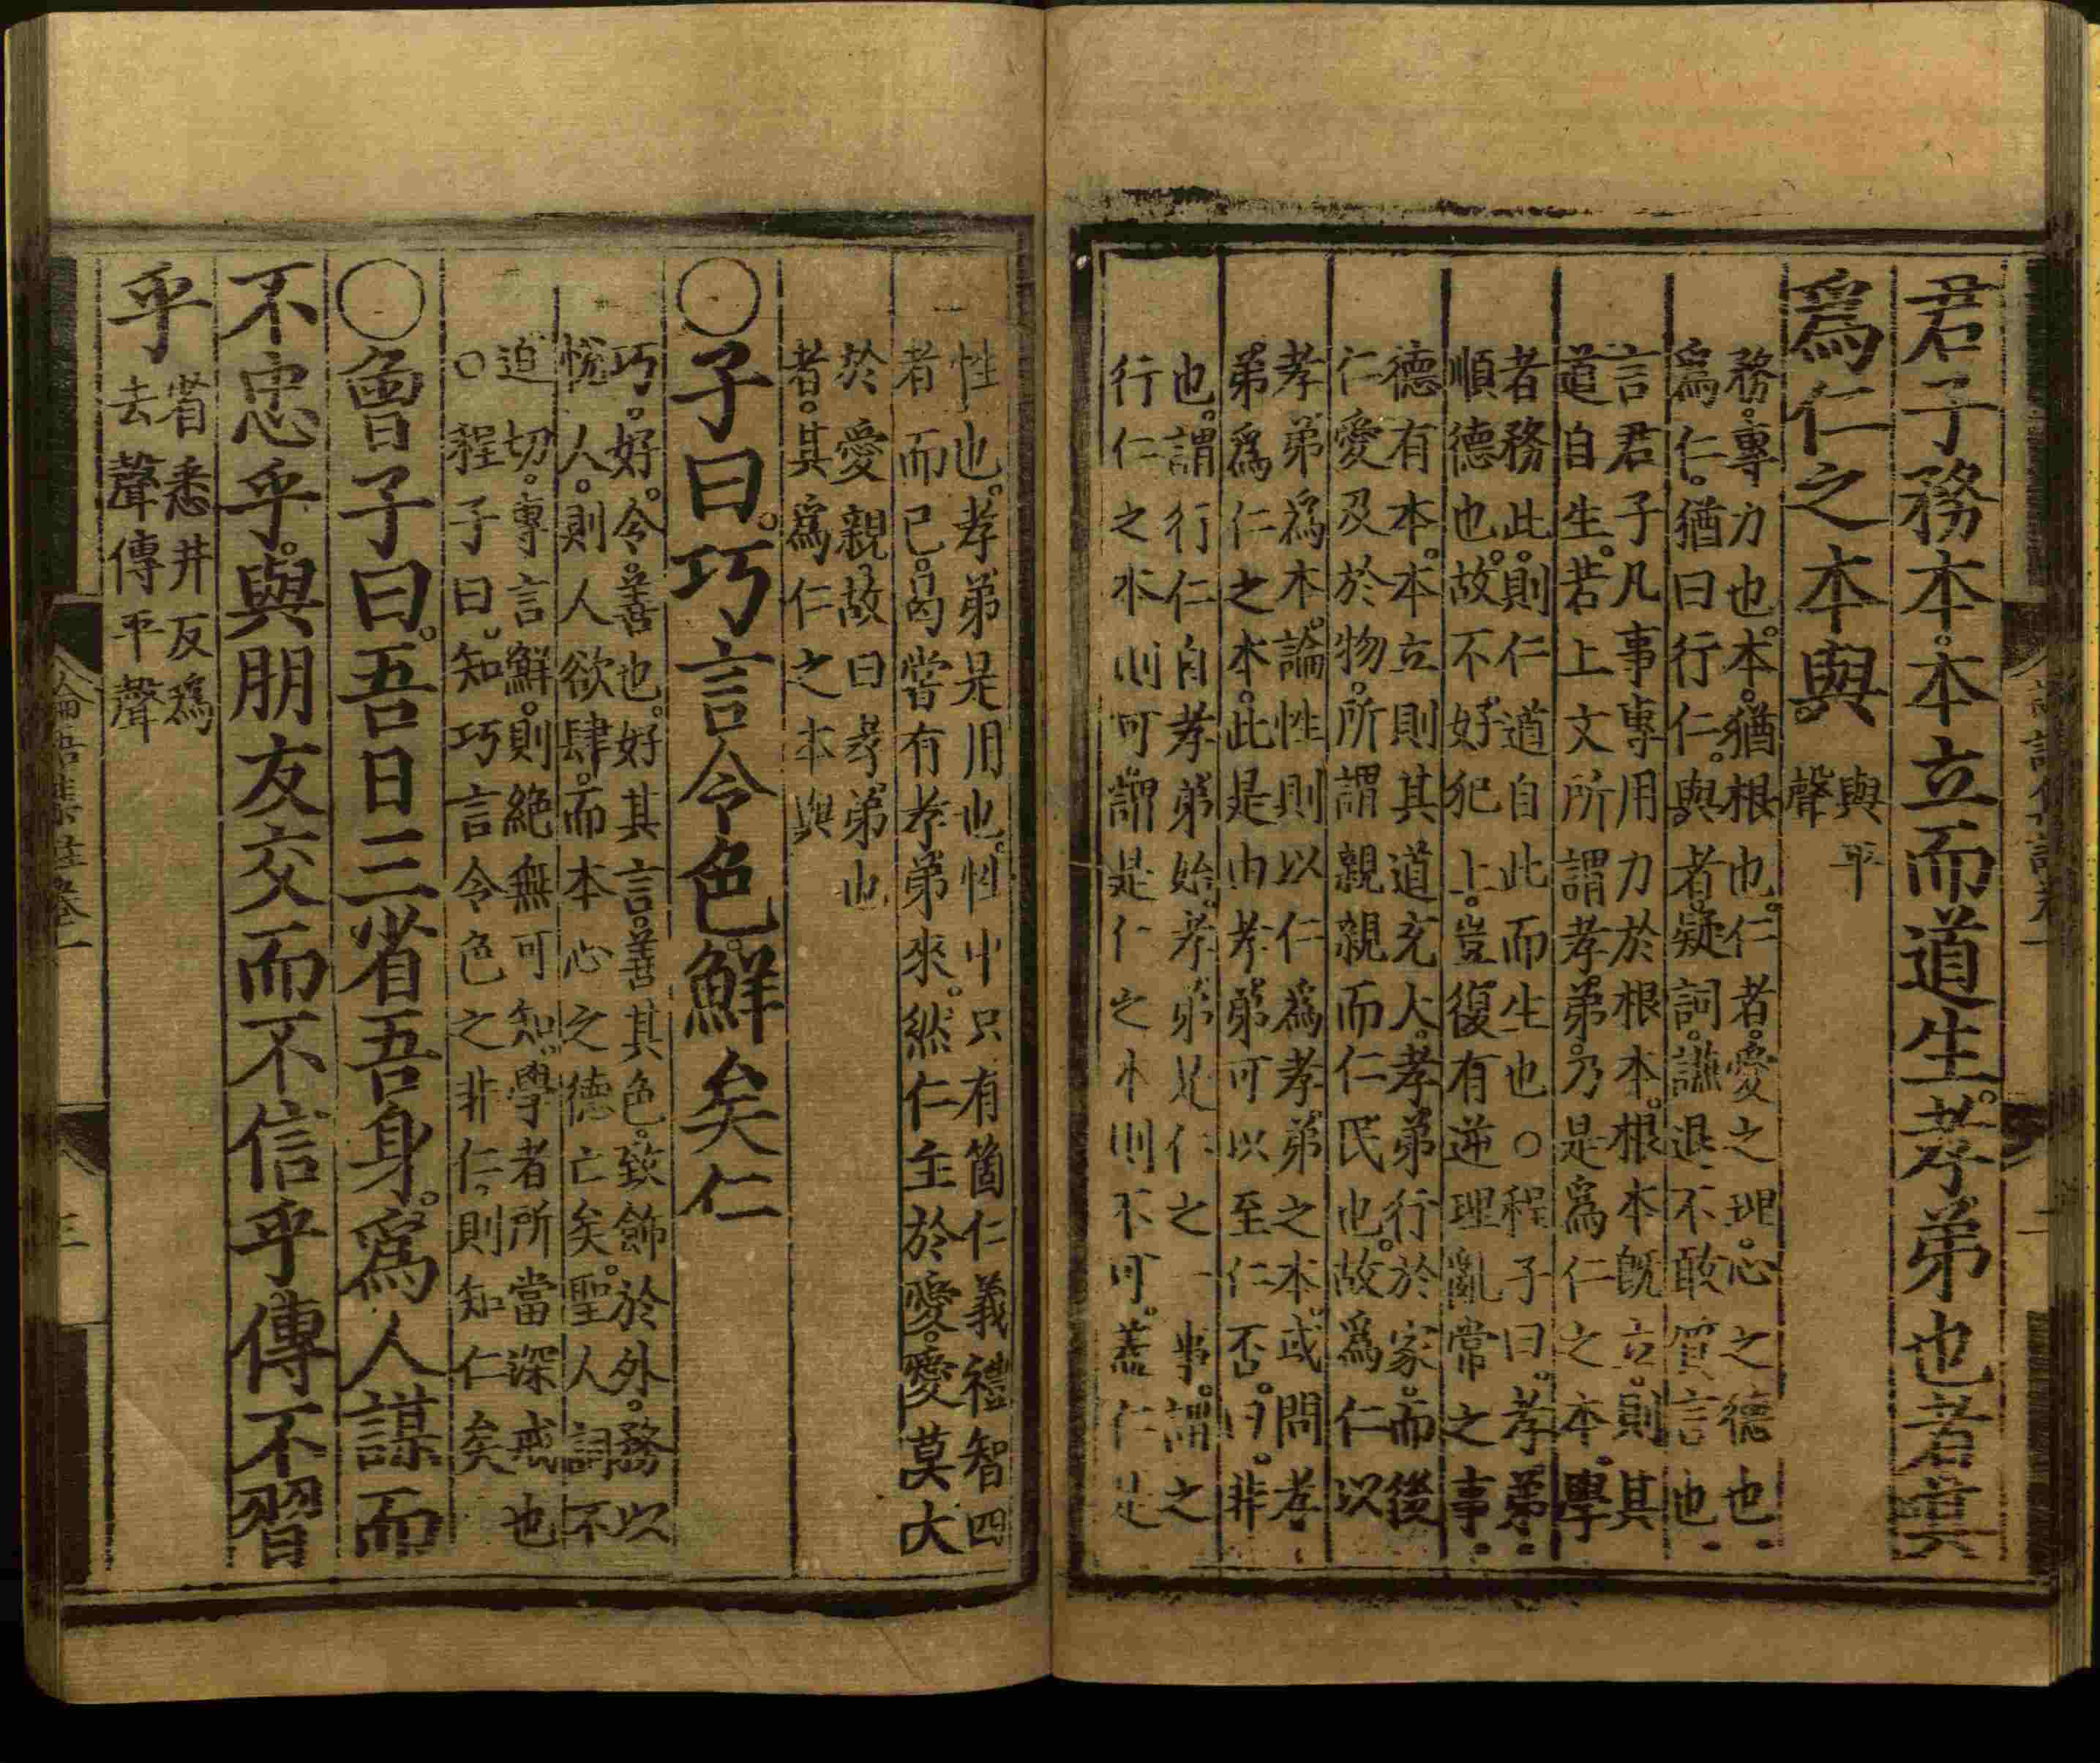 君子務本。本立而道生。孝弟也者其
爲仁之本與。與平
聲
務。專力也。本。猶根也。仁者。愛之理。心之德也。
爲仁。猶曰行仁。與者。疑詞。謙退不敢質言也。
言君子凡事專用力於根本。根本旣立。則其
道自生。若上文所謂孝弟。乃是爲仁之本。學
者務此。則仁道自此而生也。○程子曰。孝弟。
順德也。故不好犯上。豈復有逆理亂常之事。
德有本。本立則其道充大。孝弟行於家。而後
仁愛及於物。所謂親親而仁民也。故爲仁以
孝弟爲本。論性則以仁爲孝弟之本。或問孝
弟爲仁之本。此是由孝弟可以至仁否。曰。非
也。謂行仁自孝弟始。孝弟是仁之一事。謂之
行仁之本則可。謂是仁之本則不可。蓋仁是
性也。孝弟是用也。性中只有箇仁義禮智四
者而已。曷嘗有孝弟來。然仁主於愛。愛莫大
於愛親。故曰孝弟也
者。其爲仁之本與
○子曰。巧言令色。鮮矣仁
巧。好。令。善也。好其言。善其色。致飾於外。務以
悅人。則人欲肆。而本心之德亡矣。聖人詞不
迫切。專言鮮。則絶無可知。學者所當深戒也
○程子曰。知巧言令色之非仁。則知仁矣
○曾子曰。吾日三省吾身。爲人謀而
不忠乎。與朋友交而不信乎。傳不習
乎 省悉井反爲
去聲傳平聲
論語集註卷一
三